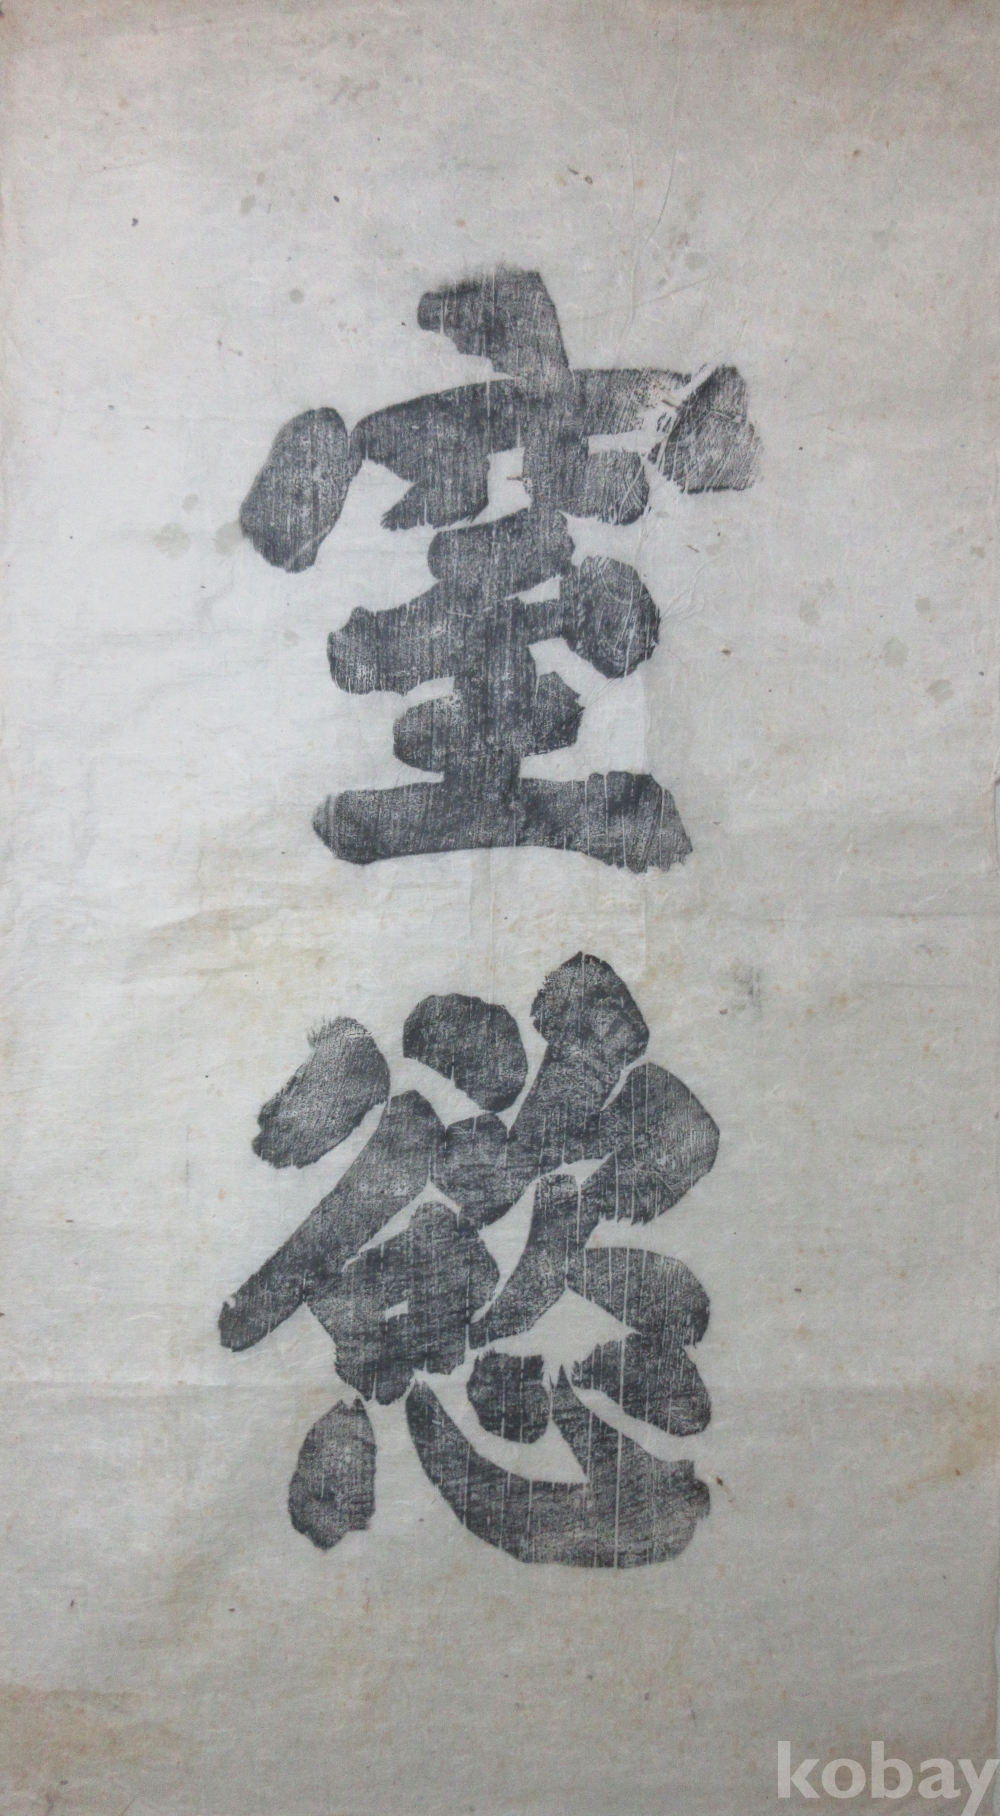 窒慾
kobay